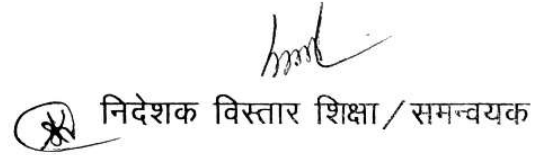 निदेशक विस्तार शिक्षा / समन्वयक